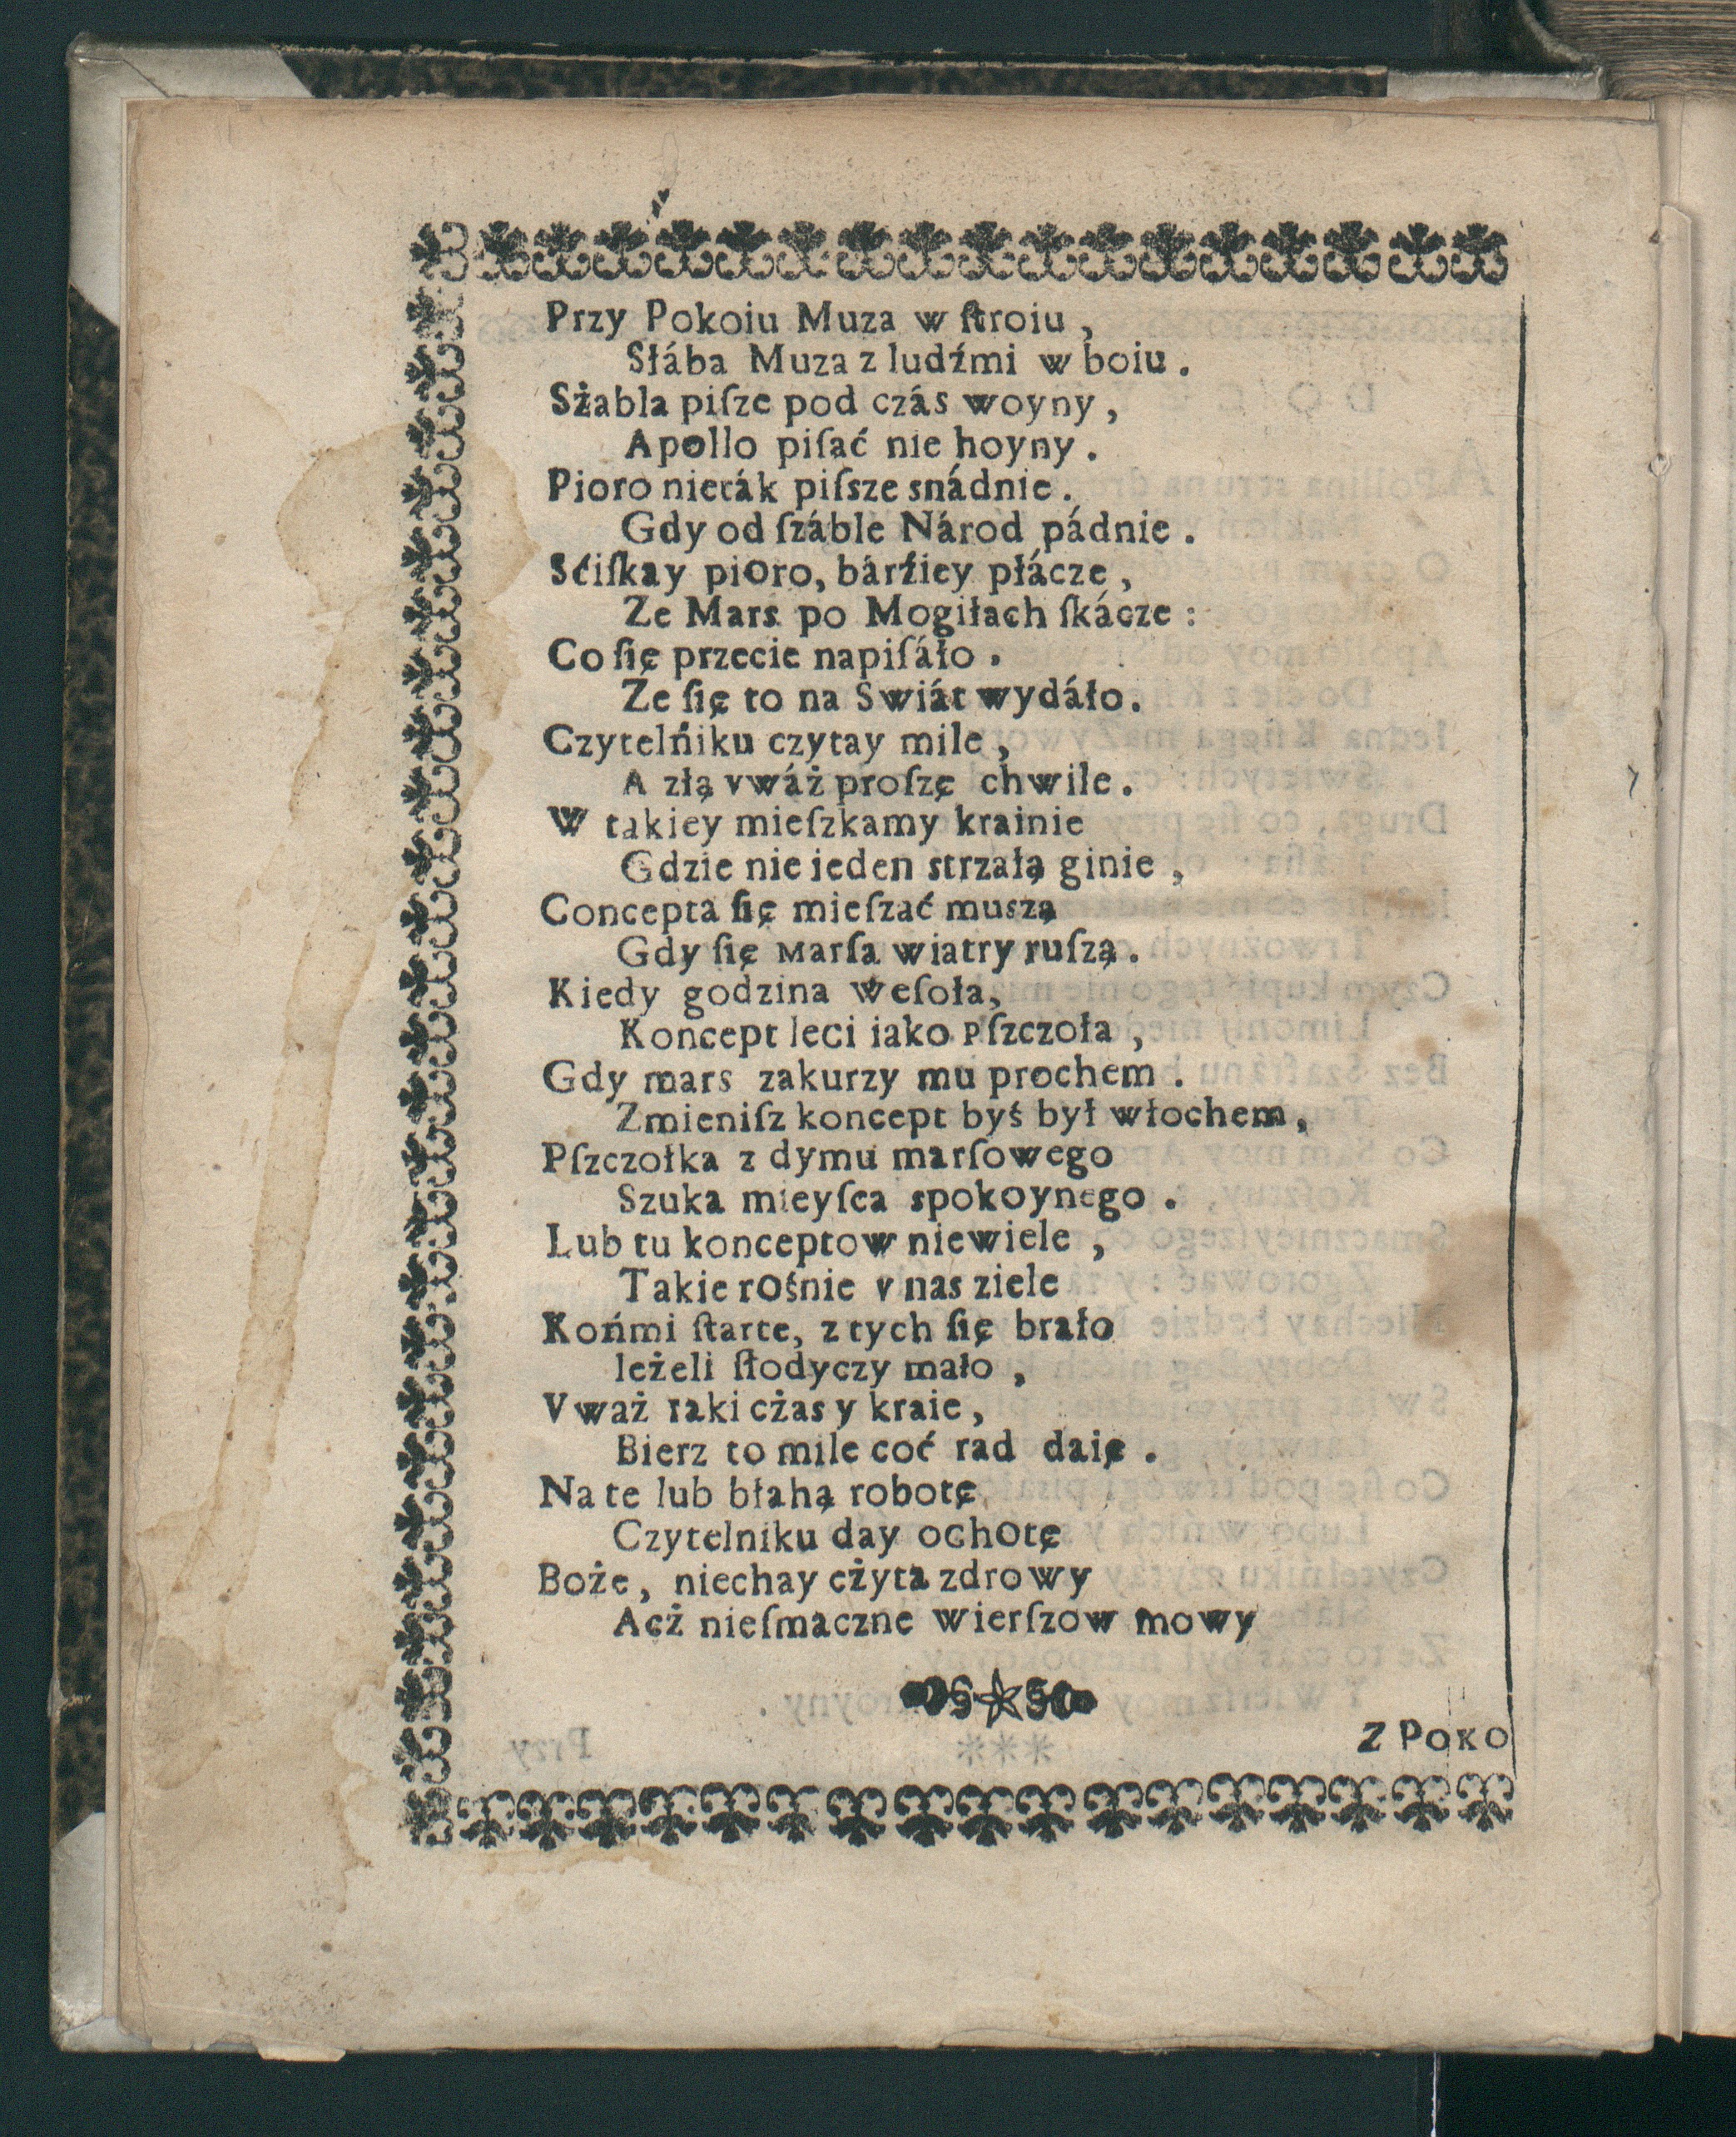 Przy Pokoiu Muza w ſtroiu ,
Słába Muza z ludźmi w boiu .
Sżabla piſze pod czás woyny ,
Apollo piſać nie hoyny .
Pioro nieták piſsze snádnie .
Gdy od ſzáble Národ pádnie .
Sćiſkay pioro, bárźiey płácze ,
Ze Mars po Mogiłach ſkácze :
Co ſię przecie napiſáło .
Ze ſię to na Swiát wydáło .
Czytelńiku czytay mile ,
A złą vwáż proſzę chwile .
W takiey mieſzkamy krainie
Gdzie nie jeden strzałą ginie ,
Concepta ſię mieſzać muszą
Gdy ſię Marſa wiatry ruſzą .
Kiedy godzina weſoła,
Koncept leci iako Pſzczoła ,
Gdy mars zakurzy mu prochem .
Zmieniſz koncept byś był włochem ,
Pſzczołka z dymu marſowego
Szuka mieyſca spokoynego .
Lub tu konceptow niewiele ,
Takie rośnie v nas ziele
Końmi ſtarte, z tych ſię brało
Ieżeli ſłodyczy mało ,
Vważ taki cżas y kraie ,
Bierz to mile coć rad daię .
Na te lub błahą robotę
Czytelniku day ochotę
Boże , niechay cżyta zdrowy
Acż nieſmaczne wierſzow mowy
Z POKO